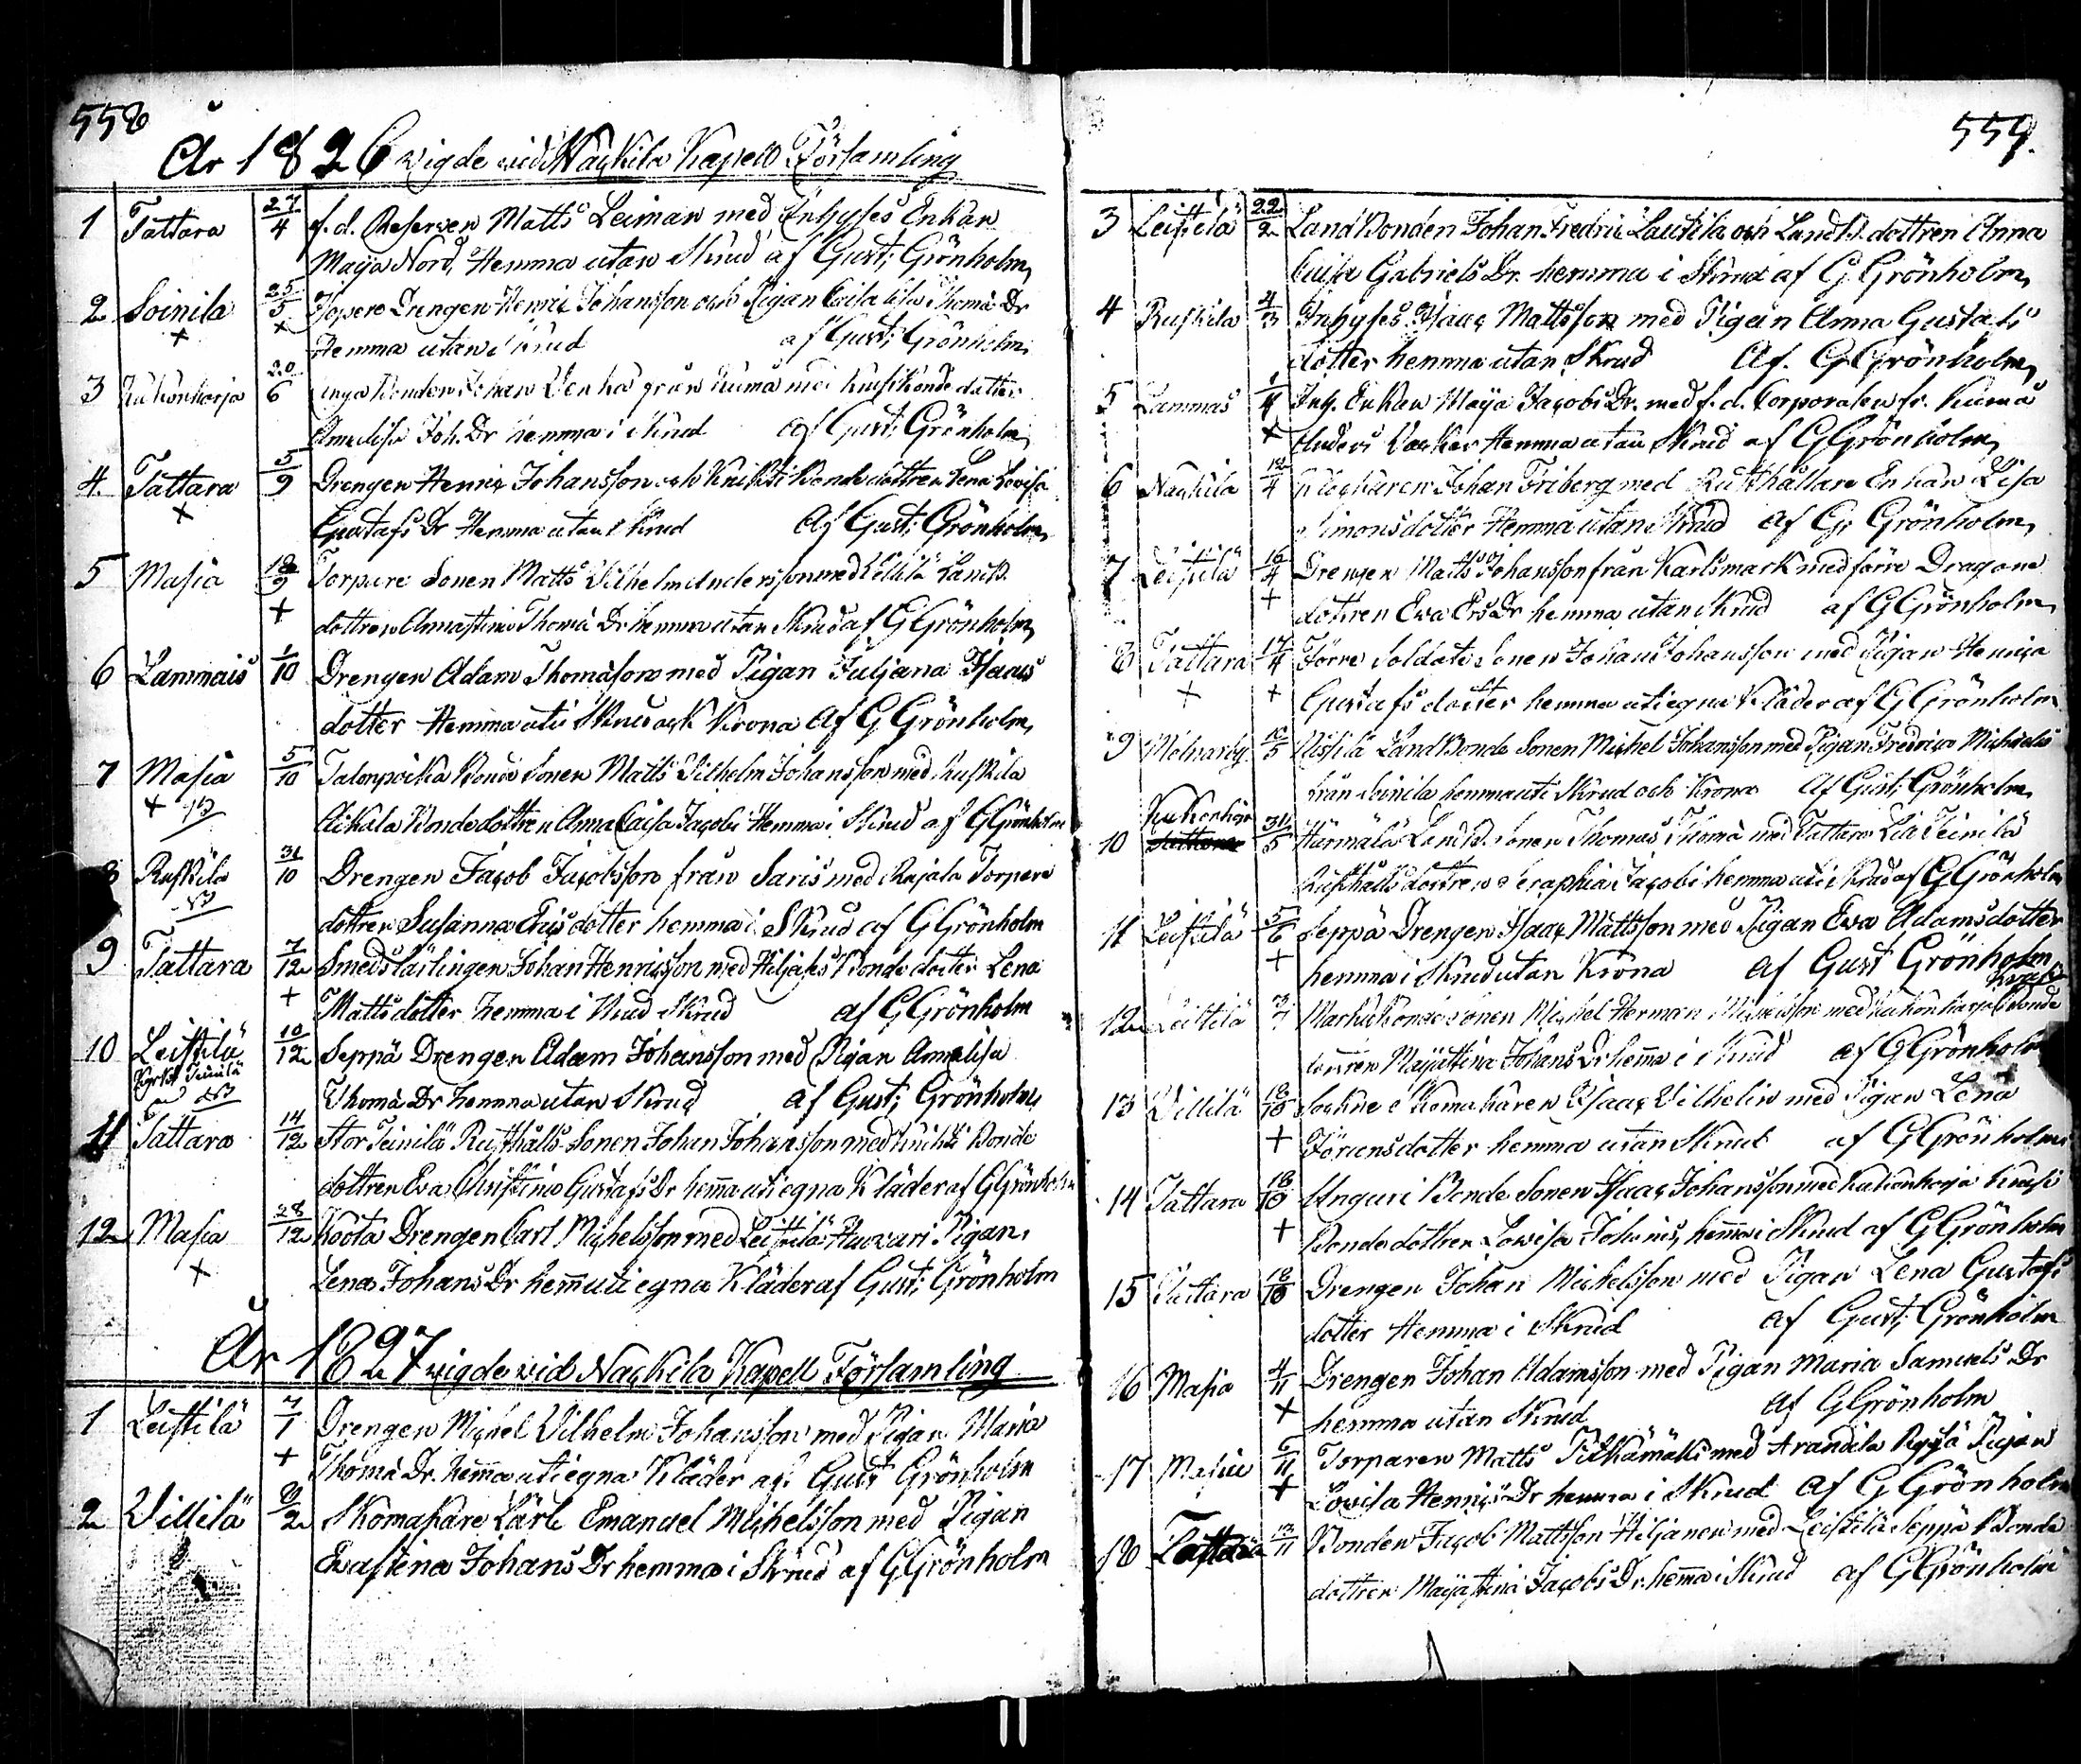 558
År 1826 wigde wid Nackila Kapell Församling
1 Tattara 27/4 f.d. Reserven Matts Leiman med Inhyses Enkan
Maija Nord, Hemma utan Skrud af Gust; Grönholm
2 Soinila 25/5 Drengen Henric Johansson och Pigan Thoma Dr
+ + Hemma utan Skrud af Gust; Grönholm
3 Kukonharja 20/6 Bonden Johan från Kumå med Bonde dotter
Joh. Dr hemma i Skrud af Gust; Grönholm
4. Tattara 5/9 Drengen Henric Johansson och Knihti Bonde dottren Lena Lovisa
+ Gustafs Dr Hemma utan Skrud Af Gust; Grönholm
5 Masia 18/9 Torpare Sonen Matts Vilhelm Andersson med Villilä Landb.
+ dottren Annastina Thoma Dr hemma utan Skrud af G Grönholm
6 Lammais 1/10 Drengen Adam Thomasson med Pigan Juljana Isaacs
dotter Hemma uti Skrud och Krona Af G Grönholm
7 Masia 5/10 Talonpoika Bonde Sonen Matts Vilhelm Johansson med Ruskila
+ Bondedottren Anna Caisa Jacobs Hemma i Skrud af G Grönholm
8 Ruskila 31/10 Drengen Jacob Jacobsson från Saris med Rajala Torpare
dottren Susanna Erics dotter hemma i Skrud af G Grönholm
9 Tattara 7/12 Smeds lärlingen Johan Henricsson med Hiljakis Bonde dotter Lena
+ Matts dotter hemma i Skrud af G Grönholm
10 Leistilä 10/12 Seppä Drengen Adam Johansson med Pigan Annalisa
Thoma Dr hemma utan Skrud af Gust; Grönholm
11 Tattara 14/12 Stor Teinilä Rusthålls Sonen Johan Johansson med Knihti Bonde
dottren Eva Christina Gustafs Dr hema uti egna Kläder af G Grönholm
12 Masia 28/12 Koota Drengen Carl Michelsson med Leistilä Pigan
+ Lena Johans Dr hema uti egna Kläder af Gust; Grönholm
År 1827 wigde wid Nackila Kapell Församling
1 Leistilä 7/1 Drengen Michel Vilhelm Johansson med Pigan Maria
+ Thoma Dr. hema uti egna Kläder af Gust Grönholm
2 Villilä /2 Skomakare Lärl. Emanuel Michelsson med Pigan
Evastina Johans Dr hemma i Skrud af G Grönholm
559.
3 Leistilä 22/2 Land Bonden Johan Fredric Lautila och Landb. dottren Anna
Caisa Gabriels Dr. hemma i Skrud af G Grönholm
4 Ruskila 4/3 Inhyses Isaac Mattsson med Pigan Anna Gustafs
dotter hemma utan Skrud Af. G Grönholm
5 Lammas 1/4 Inh. Enkan Maija Jacobs Dr. med f.d. Corporalen fr. Kumå
+ Anders Hemma utan Skrud af G Grönholm
6 Nackila 12/4 Johan Friberg med Rusthållare Enkan Lisa
Simonsdotter Hemma utan Skrud af G; Grönholm
7 Leistilä 16/4 Drengen Matts Johansson från Karlsmark med förre Dragone
+ dottren Eva Ers Dr hemma utan Skrud af G Grönholm
8 Tattara 17/4 Förre Soldats Sonen Johan Johansson med Pigan Henrica
+ + Gustafs dotter hemma uti egna Kläder af G Grönholm
9 Molnarby /5 Land Bonde Sonen Michel Johansson med Pigan Fredrica Michaels
från Soinila hemma uti Skrud och Krona Af Gust; Grönholm
Kukonharja
10 31/5 Härmälä Landb. Sonen Thomas Thoma med Tattara Teinilä
Rusthålls dottren Seraphia Jacobs hemma uti Skrud af G Grönholm
11 Leistilä 5/6 Seppä Drengen Isaac Mattsson med Pigan Eva Adamsdotter
+ hemma i Skrud utan Krona af Gust Grönholm
12 Leistilä /7 Sonen Michel Herman med Kukonharja Bonde
dottren Maijastina Johans Dr hema i Skrud af G Grönholm
13 Villilä 18/10 Sockne Skomakaren Isaac Vilhelm med Pigan Lena
+ Göransdotter hemma utan Skrud af G Grönholm
14 Tattara 18/10 Unguri Bonde Sonen Isaac Johansson med Kukonharja
+ Bondedottren Lovisa Johans, hema i Skrud af G Grönholm
15 Tattara 18/10 Drengen Johan Michelsson med Pigan Lena Gustafs
dotter Hemma i Skrud af Gust; Grönholm
16 Masia 4/11 Drengen Johan Adamsson med Pigan Maria Samuels Dr
+ hemma utan Skrud af G Grönholm
17 Masia 6/11 Torparen Matts Pitkämäki med Arandila Pigan
+ Lovisa Henrics Dr hemma i Skrud af G Grönholm
18 /11 Bonden Jacob Mattsson Hiljanen med Leistilä Seppä Bonde
dottren Maijastina Jacobs Dr. hema i Skrud af G Grönholm